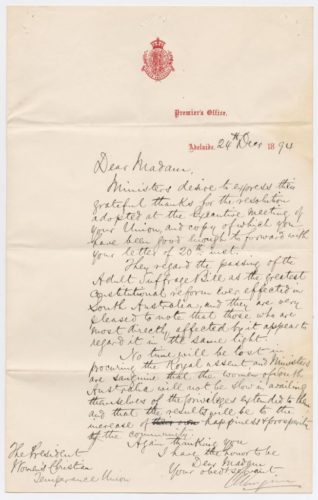 Premier's Office.
Adelaide, 24th Decr 1894
Dear Madam,
Ministers desire to express their
grateful thanks for the resolution
adopted at the Executive meeting of
your Union, and copy of which you
have been good enough to forward with
your letter of 20th inst.
They regard the passing of the
Adult Suffrage Bill as the greatest
Constitutional reform ever effected in
South Australia, and they are very
pleased to note that those who are
most directly affected by it appear to
regard it in the same light.
No time will be lost in
procuring the Royal assent and Ministers
are sanguine that the women of South
Australia will not be slow in availing
themselves of the privileges extended to them
and that the results will be to the
increase of happiness & prosperity
of the community.
Again thanking you
I have the honor to be
Dear Madam
Your obedt servant
The President
Women's Christian
Temperance Union